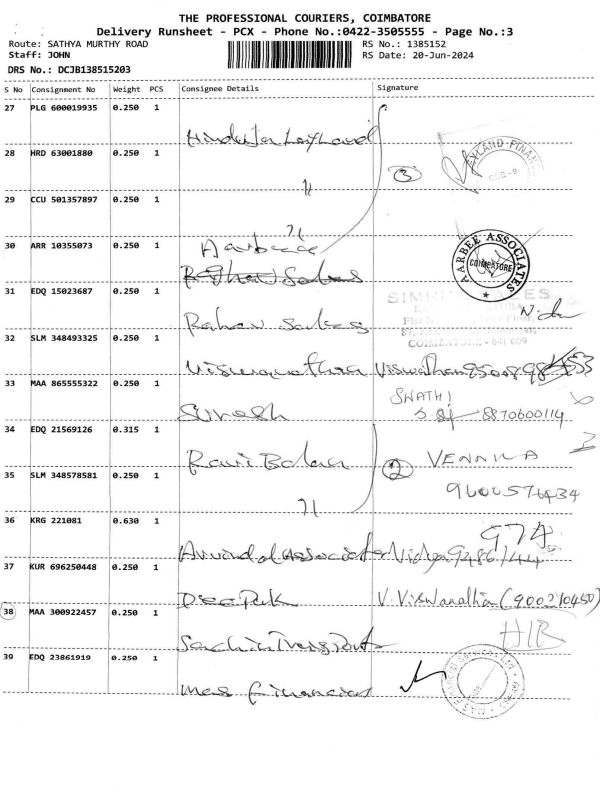 THE PROFESSIONAL COURIERS, COIMBATORE
Delivery Runsheet - PCX - Phone No.:0422-3505555 - Page No.:3
Route: SATHYA MURTHY ROAD RS No.: 1385152
Staff: JOHN RS Date: 20-Jun-2024
DRS No.: DCJB138515203
S No Consignment No Weight PCS Consignee Details Signature
27 PLG 600019935 0.250 1
Hinduja Leyland
28 HRD 63001880 0.250 1
3
LAYLAND FINAN
CBE-9
"
29 CCU 501357897 0.250 1
"
30 ARR 10355073 0.250 1
Aarbee
AARBEE ASSOCIATES
COIMBATORE
31 EDQ 15023687 0.250 1
Rahav Sales
32 SLM 348493325 0.250 1
COIMBATORE - 641 009
Viswanathan Viswathan
33 MAA 865555322 0.250 1
SWATHI
Suresh 8870600114
34 EDQ 21569126 0.315 1
Ravi Balan 2 VENNILA
35 SLM 348578581 0.250 1
9600576434
"
36 KRG 221081 0.630 1
974
Arvind Associates Vidya
37 KUR 696250448 0.250 1
DeePak V. Viswanathan (
38 MAA 300922457 0.250 1
Sachin Transport
39 EDQ 23861919 0.250 1
Mas Financial